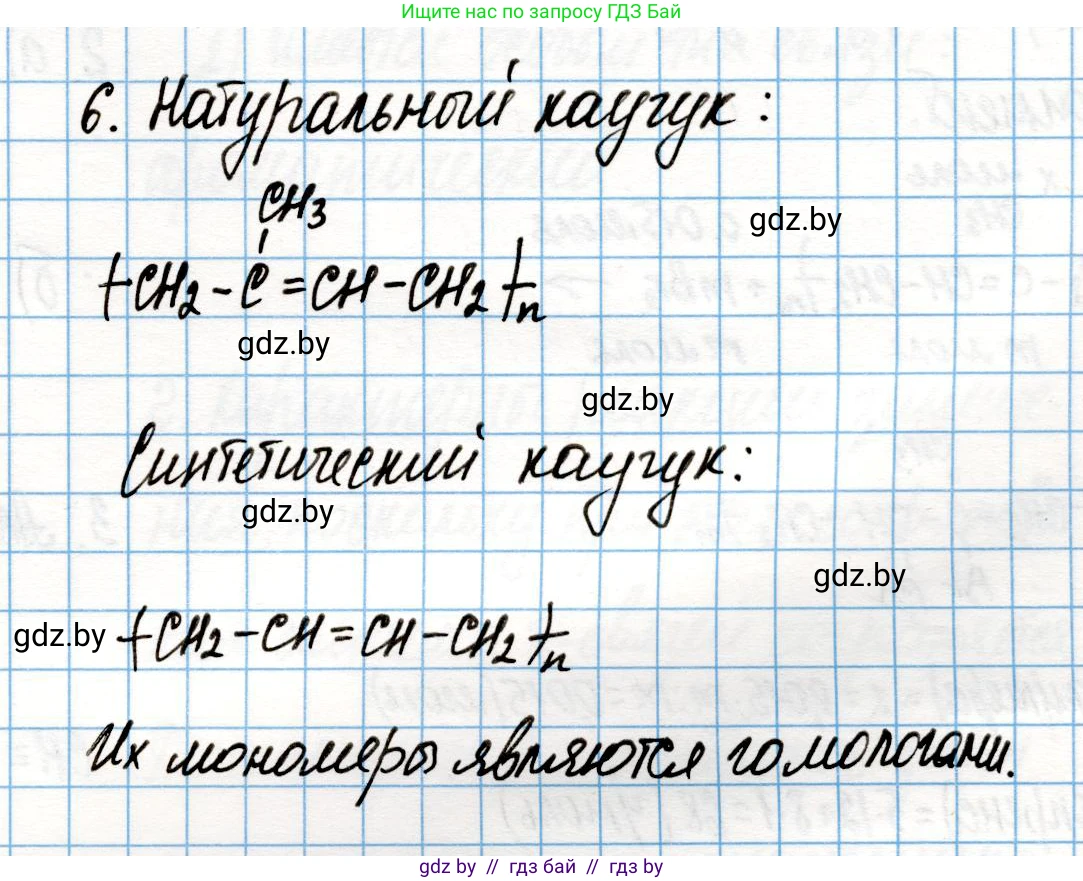 Ищите нас по запросу ГДЗ Бай
6. Натуральный каучук:
CH3
gdz.by
(-CH2-C=CH-CH2-)n
gdz.by
gdz.by
Синтетический каучук:
gdz.by
gdz.by
gdz.by (-CH2-CH=CH-CH2-)n
Их мономеры являются гомологами.
gdz by // гдз бай // гдз by